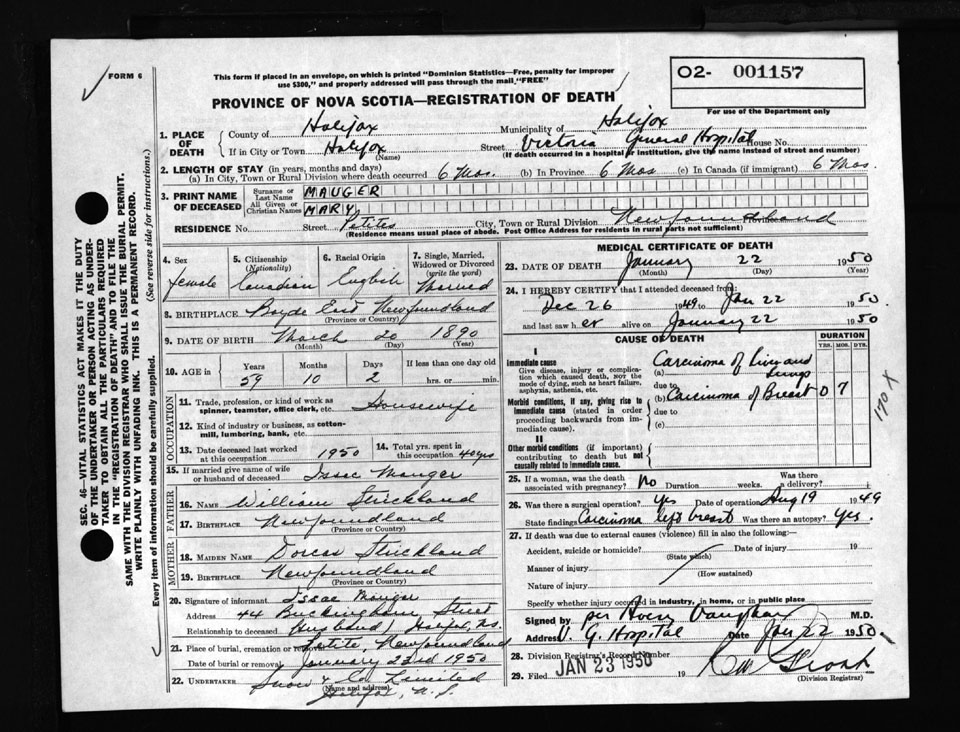 FORM 6
This form if placed in an envelope, on which is printed "Dominion Statistics—Free, penalty for improper
use $300," and properly addressed will pass through the mail, "FREE"
O2- 001157
For use of the Department only
PROVINCE OF NOVA SCOTIA—REGISTRATION OF DEATH
1. PLACE OF DEATH
County of Halifax Municipality of Halifax
If in City or Town Halifax (Name) Street Victoria General Hospital House No.
(If death occurred in a hospital or institution, give the name instead of street and number)
2. LENGTH OF STAY (in years, months and days)
(a) In City, Town or Rural Division where death occurred 6 Mos. (b) In Province 6 Mos (c) In Canada (if immigrant) 6 Mos.
3. PRINT NAME OF DECEASED
Surname or Last Name MAUGER
All Given or Christian Names MARY
RESIDENCE No. Street Petites City, Town or Rural Division Newfoundland Province
(Residence means usual place of abode. Post Office Address for residents in rural parts not sufficient)
4. Sex
Female
5. Citizenship (Nationality)
Canadian
6. Racial Origin
English
7. Single, Married, Widowed or Divorced (write the word)
Married
8. BIRTHPLACE East Newfoundland
(Province or Country)
9. DATE OF BIRTH March 20 1890
(Month) (Day) (Year)
10. AGE in
Years Months Days If less than one day old
59 10 2 hrs. or min.
OCCUPATION
11. Trade, profession or kind of work as spinner, teamster, office clerk, etc. Housewife
12. Kind of industry or business, as cotton-mill, lumbering, bank, etc.
13. Date deceased last worked at this occupation 1950
14. Total yrs. spent in this occupation 40 yrs
15. If married give name of wife or husband of deceased Isaac Mauger
FATHER
16. NAME William Strickland
17. BIRTHPLACE Newfoundland
(Province or Country)
MOTHER
18. MAIDEN NAME Dorcas Strickland
19. BIRTHPLACE Newfoundland
(Province or Country)
20. Signature of informant Isaac Mauger
Address 44 Buckingham Street
Relationship to deceased Husband / Halifax, N.S.
21. Place of burial, cremation or removal Petite, Newfoundland
Date of burial or removal January 23rd 1950
22. UNDERTAKER Snow & Co Limited
(Name and address)
Halifax, N.S.
MEDICAL CERTIFICATE OF DEATH
23. DATE OF DEATH January 22 1950
(Month) (Day) (Year)
24. I HEREBY CERTIFY that I attended deceased from:
Dec 26 1949 to Jan 22 1950
and last saw her alive on January 22 1950
CAUSE OF DEATH
DURATION
YRS. MOS. DYS.
I
Immediate cause
Give disease, injury or complication which caused death. Not the mode of dying, such as heart failure, asphyxia, asthenia, etc.
(a) Carcinoma of Liver and Lungs
due to
Morbid conditions, if any, giving rise to immediate cause (stated in order proceeding backwards from immediate cause).
(b) Carcinoma of Breast 0 7
due to
(c)
II
Other morbid conditions (if important) contributing to death but not causally related to immediate cause.
170 X
25. If a woman, was the death associated with pregnancy? No Duration weeks. Was there a delivery?
26. Was there a surgical operation? yes Date of operation Aug 19 1949
State findings Carcinoma left breast Was there an autopsy? Yes.
27. If death was due to external causes (violence) fill in also the following:—
Accident, suicide or homicide? (State which) Date of injury 19
Manner of injury (How sustained)
Nature of injury
Specify whether injury occurred in industry, in home, or in public place
Signed by per Vaughan M.D.
Address V. G. Hospital Date Jan 22 1950.
28. Division Registrar's Record Number
29. Filed JAN 23 1950 19
(Division Registrar)
SEC. 46—VITAL STATISTICS ACT MAKES IT THE DUTY
OF THE UNDERTAKER OR PERSON ACTING AS UNDER-
TAKER TO OBTAIN ALL THE PARTICULARS REQUIRED
IN THE "REGISTRATION OF DEATH" AND TO FILE THE
SAME WITH THE DIVISION REGISTRAR WHO SHALL ISSUE THE BURIAL PERMIT.
WRITE PLAINLY WITH UNFADING INK. THIS IS A PERMANENT RECORD.
Every item of information should be carefully supplied. (See reverse side for instructions.)